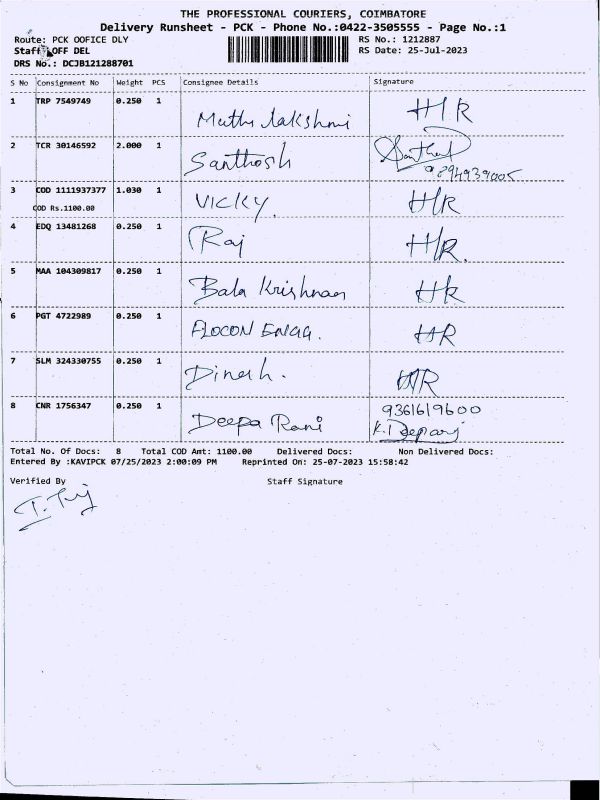 THE PROFESSIONAL COURIERS, COIMBATORE
Delivery Runsheet - PCK - Phone No.:0422-3505555 - Page No.:1
Route: PCK OOFICE DLY RS No.: 1212887
Staff: OFF DEL RS Date: 25-Jul-2023
DRS No.: DCJB121288701
S No Consignment No Weight PCS Consignee Details Signature
1 TRP 7549749 0.250 1 Muthu lakshmi H/R
2 TCR 30146592 2.000 1 Santhosh Santhosh
3 COD 1111937377 1.030 1 VICKY. H/R
COD Rs.1100.00
4 EDQ 13481268 0.250 1 Raj H/R.
5 MAA 104309817 0.250 1 Bala Krishnan H/R
6 PGT 4722989 0.250 1 FLOCON ENGG. H/R
7 SLM 324330755 0.250 1 Dinesh. H/R
8 CNR 1756347 0.250 1 Deepa Rani 9361619600
Total No. Of Docs: 8 Total COD Amt: 1100.00 Delivered Docs: Non Delivered Docs:
Entered By :KAVIPCK 07/25/2023 2:00:09 PM Reprinted On: 25-07-2023 15:58:42
Verified By Staff Signature